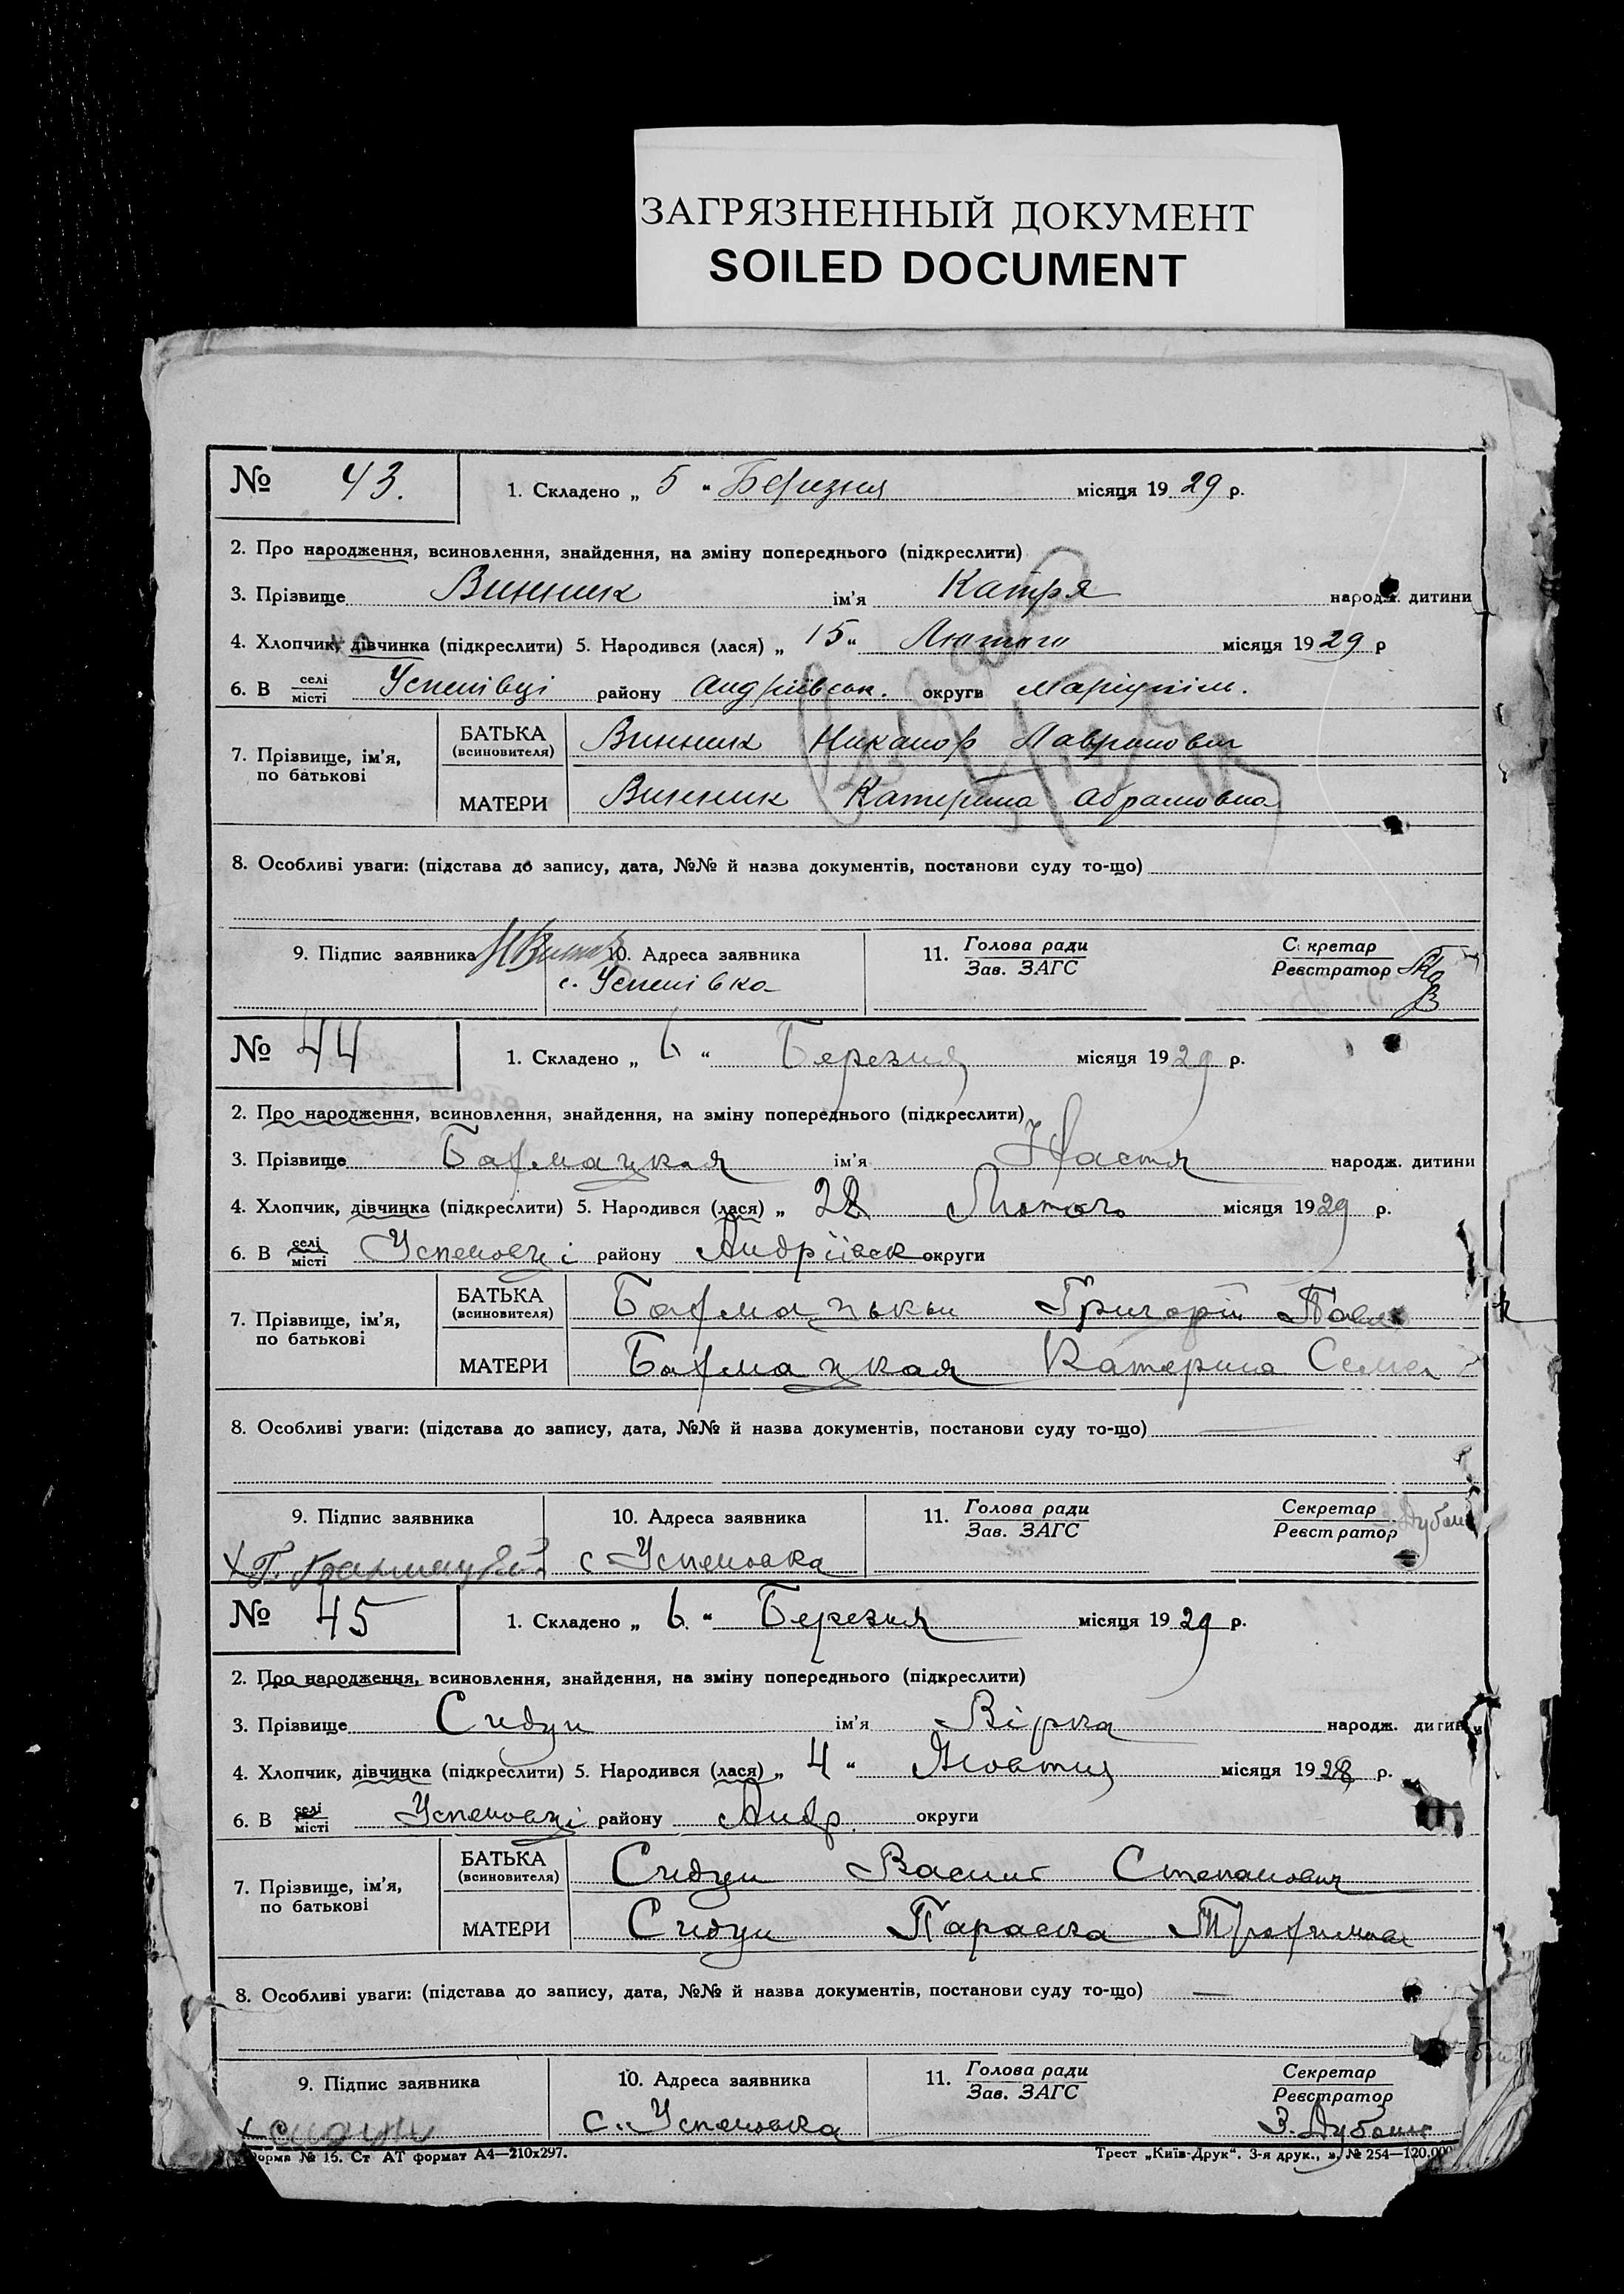 ЗАГРЯЗНЕННЫЙ ДОКУМЕНТ
SOILED DOCUMENT
№ 43. 1. Складено „ 5 “ Березня місяця 19 29 р.
2. Про народження, всиновлення, знайдення, на зміну попереднього (підкреслити)
3. Прізвище Винник ім'я Катря народж. дитини
4. Хлопчик, дівчинка (підкреслити) 5. Народився (лася) „ 15 “ Лютого місяця 19 29 р
6. В селі місті Успенівці району Андріівськ. округи Маріупіл.
7. Прізвище, ім'я, по батькові
БАТЬКА (всиновителя) Винник Никанор Лавринович
МАТЕРИ Винник Катерина Абрамовна
8. Особливі уваги: (підстава до запису, дата, №№ й назва документів, постанови суду то-що)
9. Підпис заявника 10. Адреса заявника 11. Голова ради Зав. ЗАГС Секретар Реєстратор
с. Успенівка
№ 44 1. Складено „ 6 “ Березня місяця 19 29 р.
2. Про народження, всиновлення, знайдення, на зміну попереднього (підкреслити)
3. Прізвище Бахмацкая ім'я Настя народж. дитини
4. Хлопчик, дівчинка (підкреслити) 5. Народився (лася) „ 28 Лютого місяця 19 29 р.
6. В селі місті Успеновці району Андріівськ округи
7. Прізвище, ім'я, по батькові
БАТЬКА (всиновителя) Бахмацькы Григорій Павл
МАТЕРИ Бахмацкая Катерина Семен
8. Особливі уваги: (підстава до запису, дата, №№ й назва документів, постанови суду то-що)
9. Підпис заявника 10. Адреса заявника 11. Голова ради Зав. ЗАГС Секретар Реєстратор
с Успеновка
№ 45 1. Складено „ 6. “ Березня місяця 19 29 р.
2. Про народження, всиновлення, знайдення, на зміну попереднього (підкреслити)
3. Прізвище Сидун ім'я Вірка народж. дитини
4. Хлопчик, дівчинка (підкреслити) 5. Народився (лася) „ 4 “ Жовтня місяця 19 28 р.
6. В селі місті Успеновці району Андр. округи
7. Прізвище, ім'я, по батькові
БАТЬКА (всиновителя) Сидун Василь Степанович
МАТЕРИ Сидун Параска Трофимова
8. Особливі уваги: (підстава до запису, дата, №№ й назва документів, постанови суду то-що)
9. Підпис заявника 10. Адреса заявника 11. Голова ради Зав. ЗАГС Секретар Реєстратор
х Сидун с. Успеновка З. Дубон
Форма № 15. Ст АТ формат А4—210х297. Трест „Київ-Друк“. 3-я друк., з. № 254—120.000